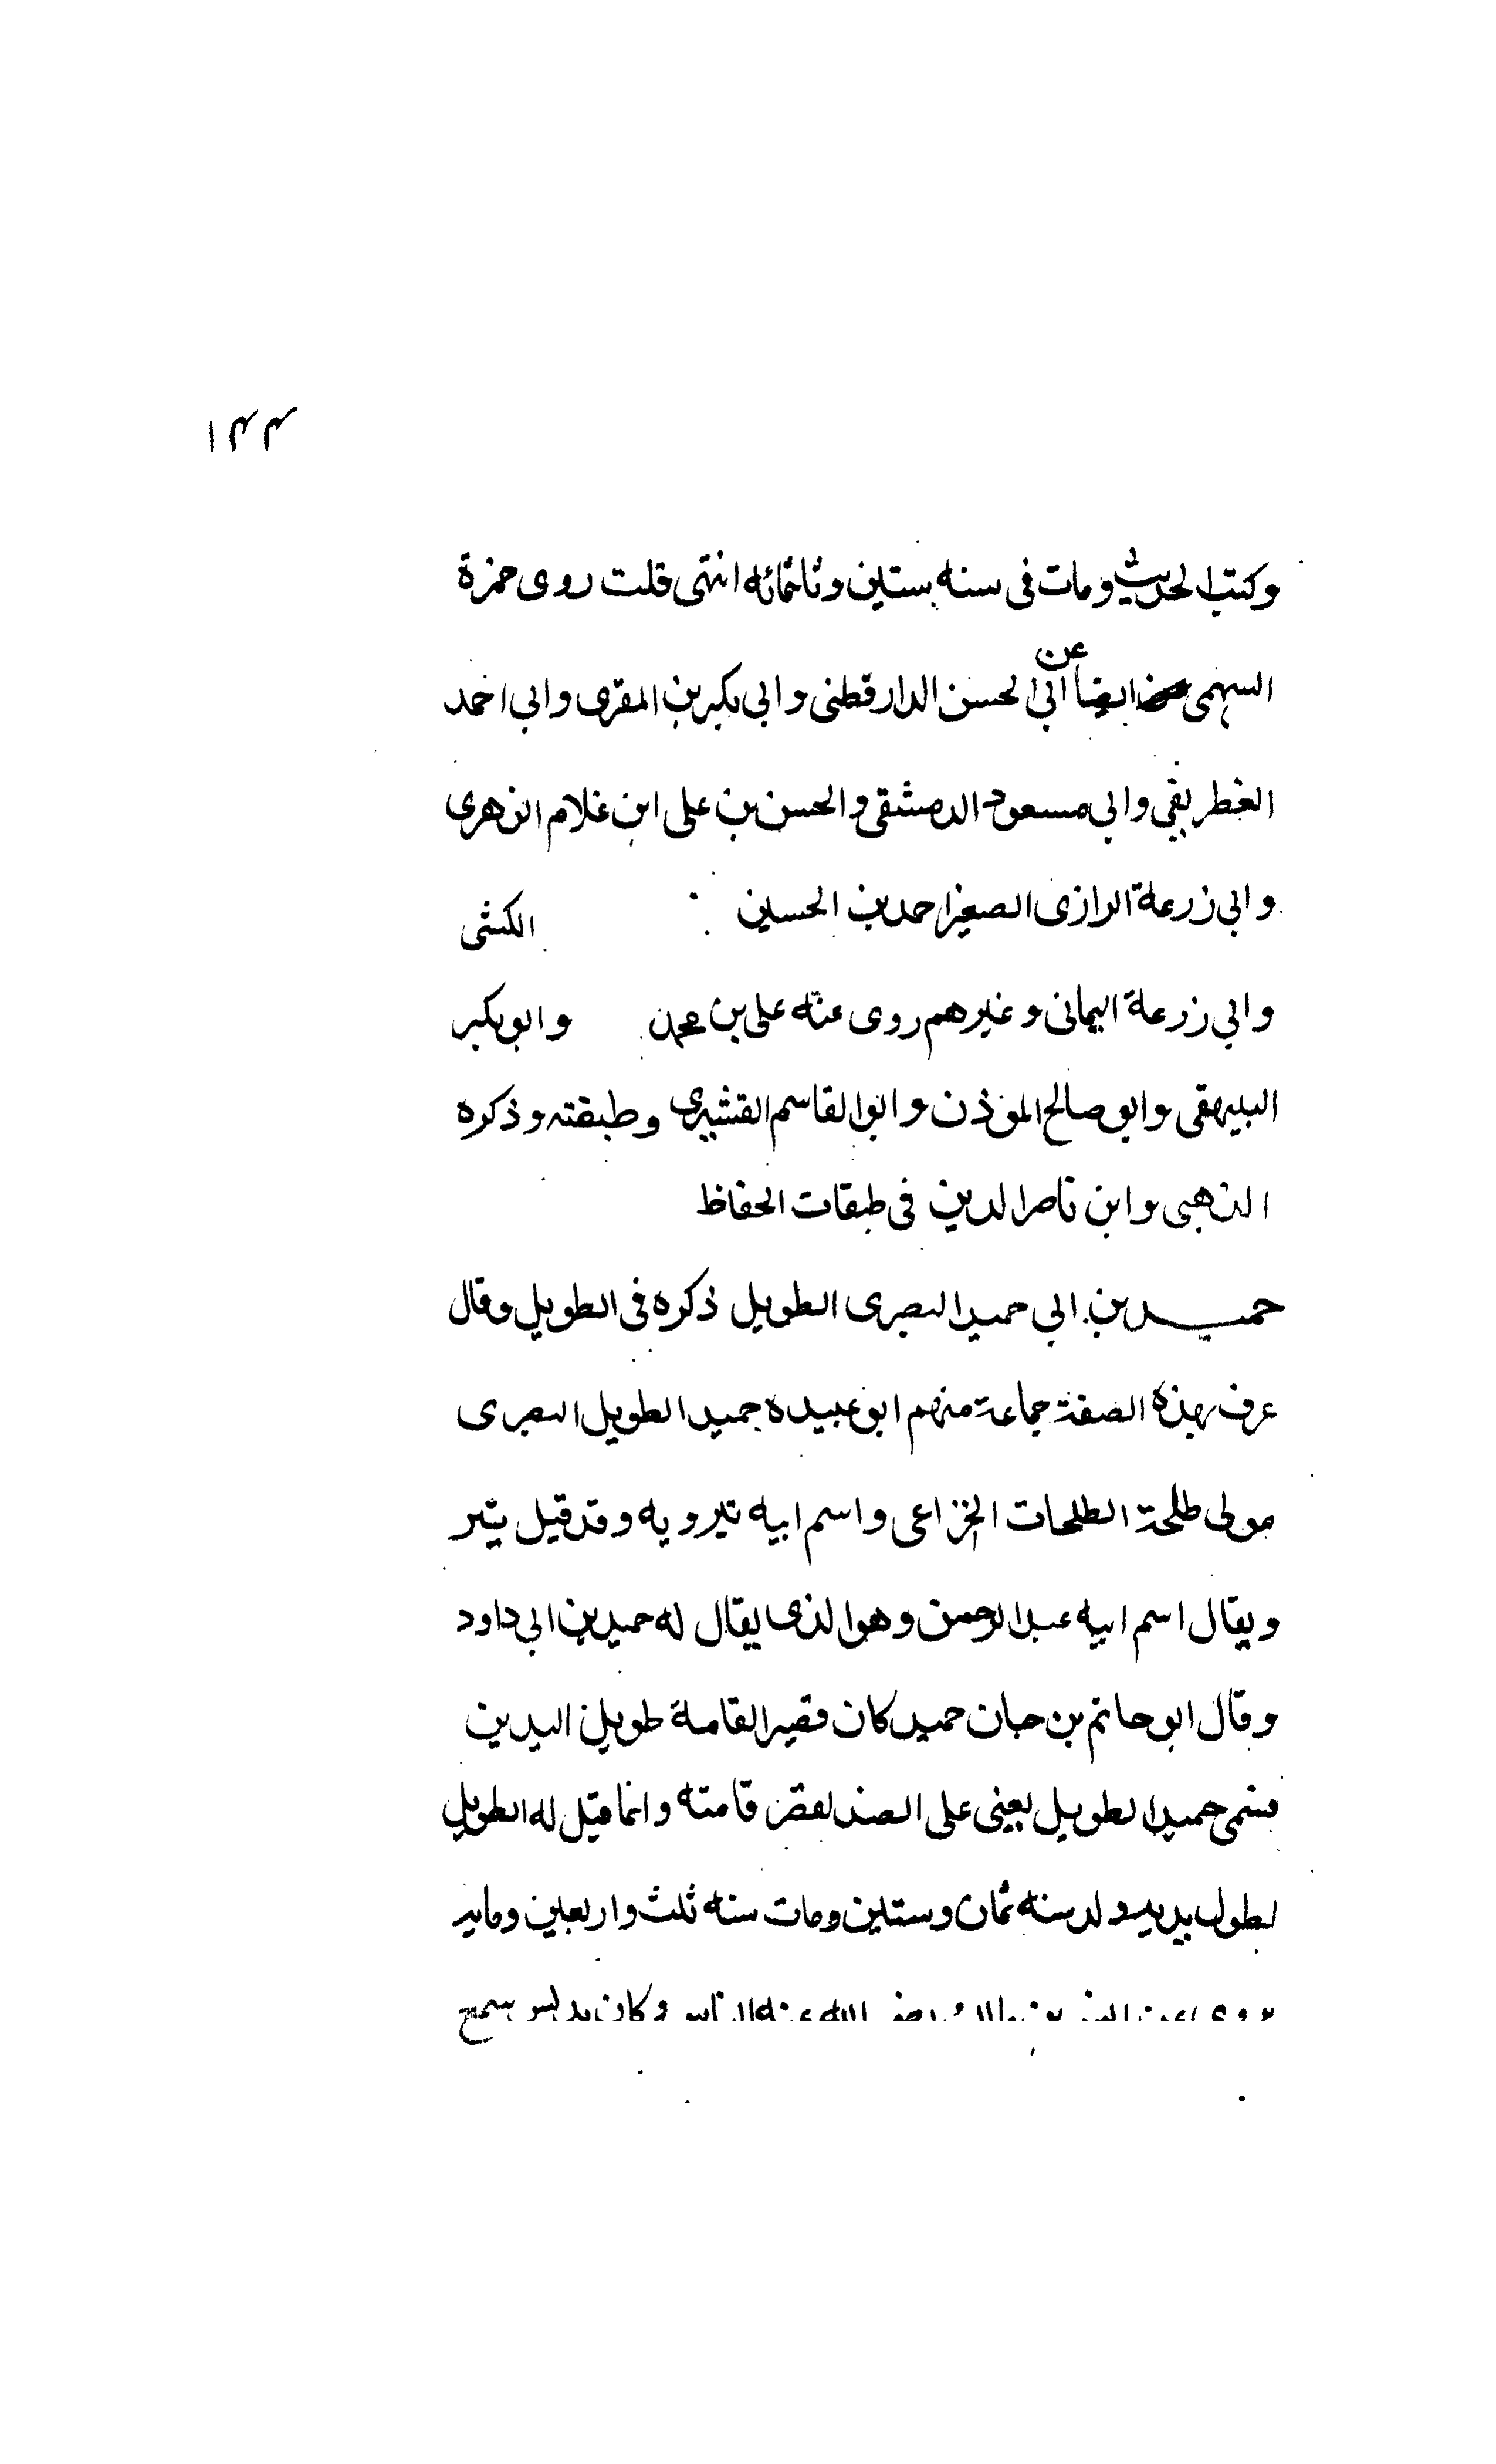 ١٤٤
وكتب الحديث ومات في سنه ستين وثلثمائه انتهى قلت روى حمزة
السهمى ايضا عن ابى الحسن الدارقطنى وابي بكير بن المقرى وابى احمد
الغطريفي وابي مسعود الدمشقى والحسن بن على ابن غلام الزهرى
وابي زرعة الرازى الصغير احمد بن الحسين الكشى
وابي زرعة اليمانى وغيرهم روى عنه على بن محمد وابوبكير
البيهقى وابو صالح الموذن وابو القاسم القشيرى وطبقته وذكره
الذهبى وابن ناصر الدين في طبقات الحفاظ
حميد بن ابي حميد البصرى الطويل ذكره في الطويل وقال
عرف بهذه الصفة جماعة منهم ابو عبيده حميد الطويل البصرى
مولى طلحة الطلحات الخزاعى واسم ابيه تيرويه وقد قيل تير
ويقال اسم ابيه عبد الرحمن وهو الذى يقال له حميد بن ابي داود
وقال ابو حاتم بن حبان حميد كان قصير القامة طويل اليدين
فسمى حميد الطويل يعنى على الضد لقصر قامته وانما قيل له الطويل
لطول يديه ولد سنه ثمان وستين ومات سنه ثلث واربعين ومايه
يروى عن انس بن مالك رضى الله عنه الناس وكان يدلس سمع